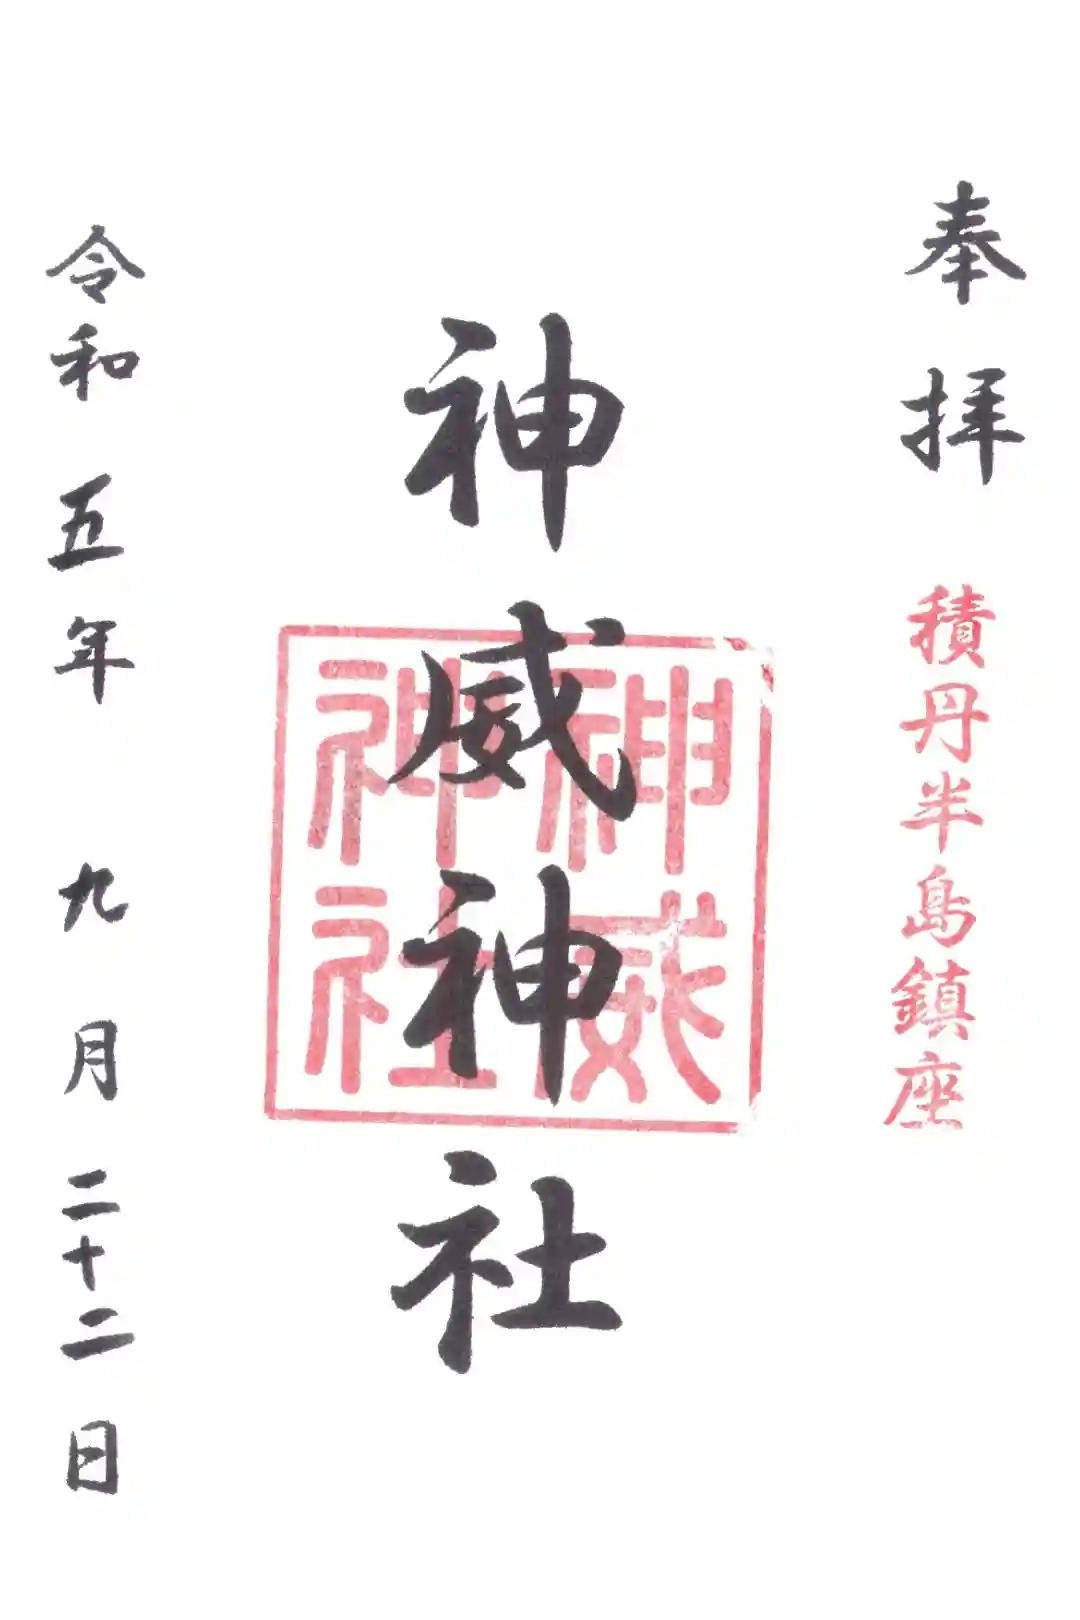 奉拝
積丹半島鎮座
神威神社
神威神社
令和五年 九月二十二日